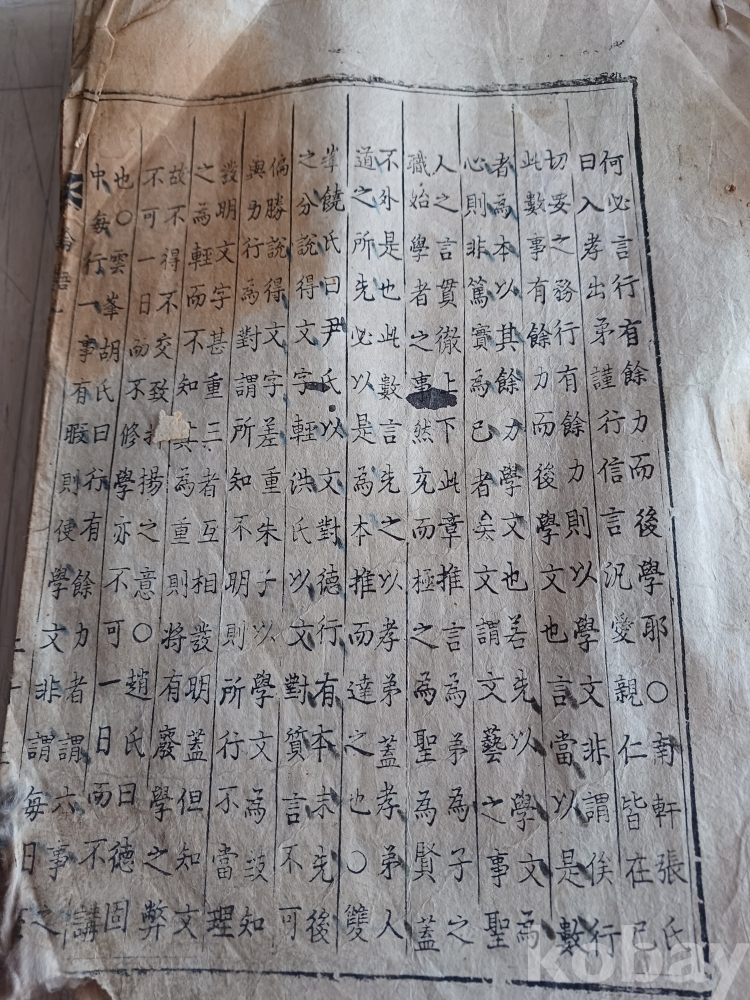 何必言行有餘力而後學耶○南軒張氏
曰入孝出弟謹行信言汎愛親仁皆在己
切要之務行有餘力則以學文非謂俟行
此數事有餘力而後學文也言當以是數
者為本以其餘力學文也若先以學文為
心則非篤實為己者矣文謂文藝之事聖
人之言貫徹上下此章推言為弟為子之
職始學者之事然充而極之為聖為賢蓋
不外是也此數言先之以孝弟蓋孝弟人
道之所先必以是為本推而達之也○雙
峯饒氏曰尹氏以文對德行有本末先後
之分說得文字輕洪氏以文對質言不可
偏勝說得文字差重朱子以學文為致知
與力行為對謂所知不明則所行不當理
發明文字甚重三者互相發明蓋但知文
之為輕而不知其為重則將有廢學之弊
故不得不交致抑揚之意○趙氏曰德固
不可一日而不修學亦不可一日而不講
也○雲峯胡氏曰行有餘力者謂六事之
中每行一事有暇則便學文非謂每日
論語一
kobay